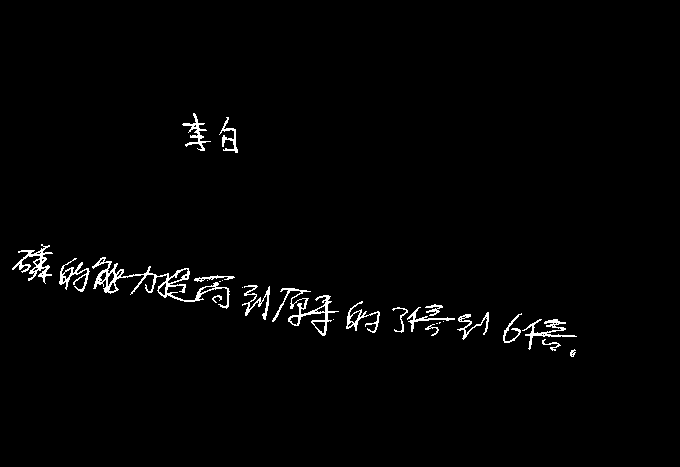 李白
磷的能力提高到原来的3倍到6倍。